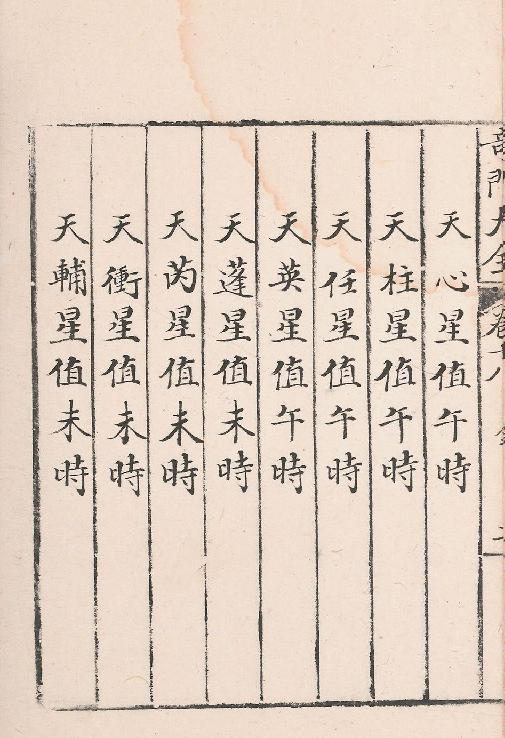 天心星值午時
天柱星值午時
天任星值午時
天英星值午時
天蓬星值未時
天芮星值未時
天衝星值未時
天輔星值未時